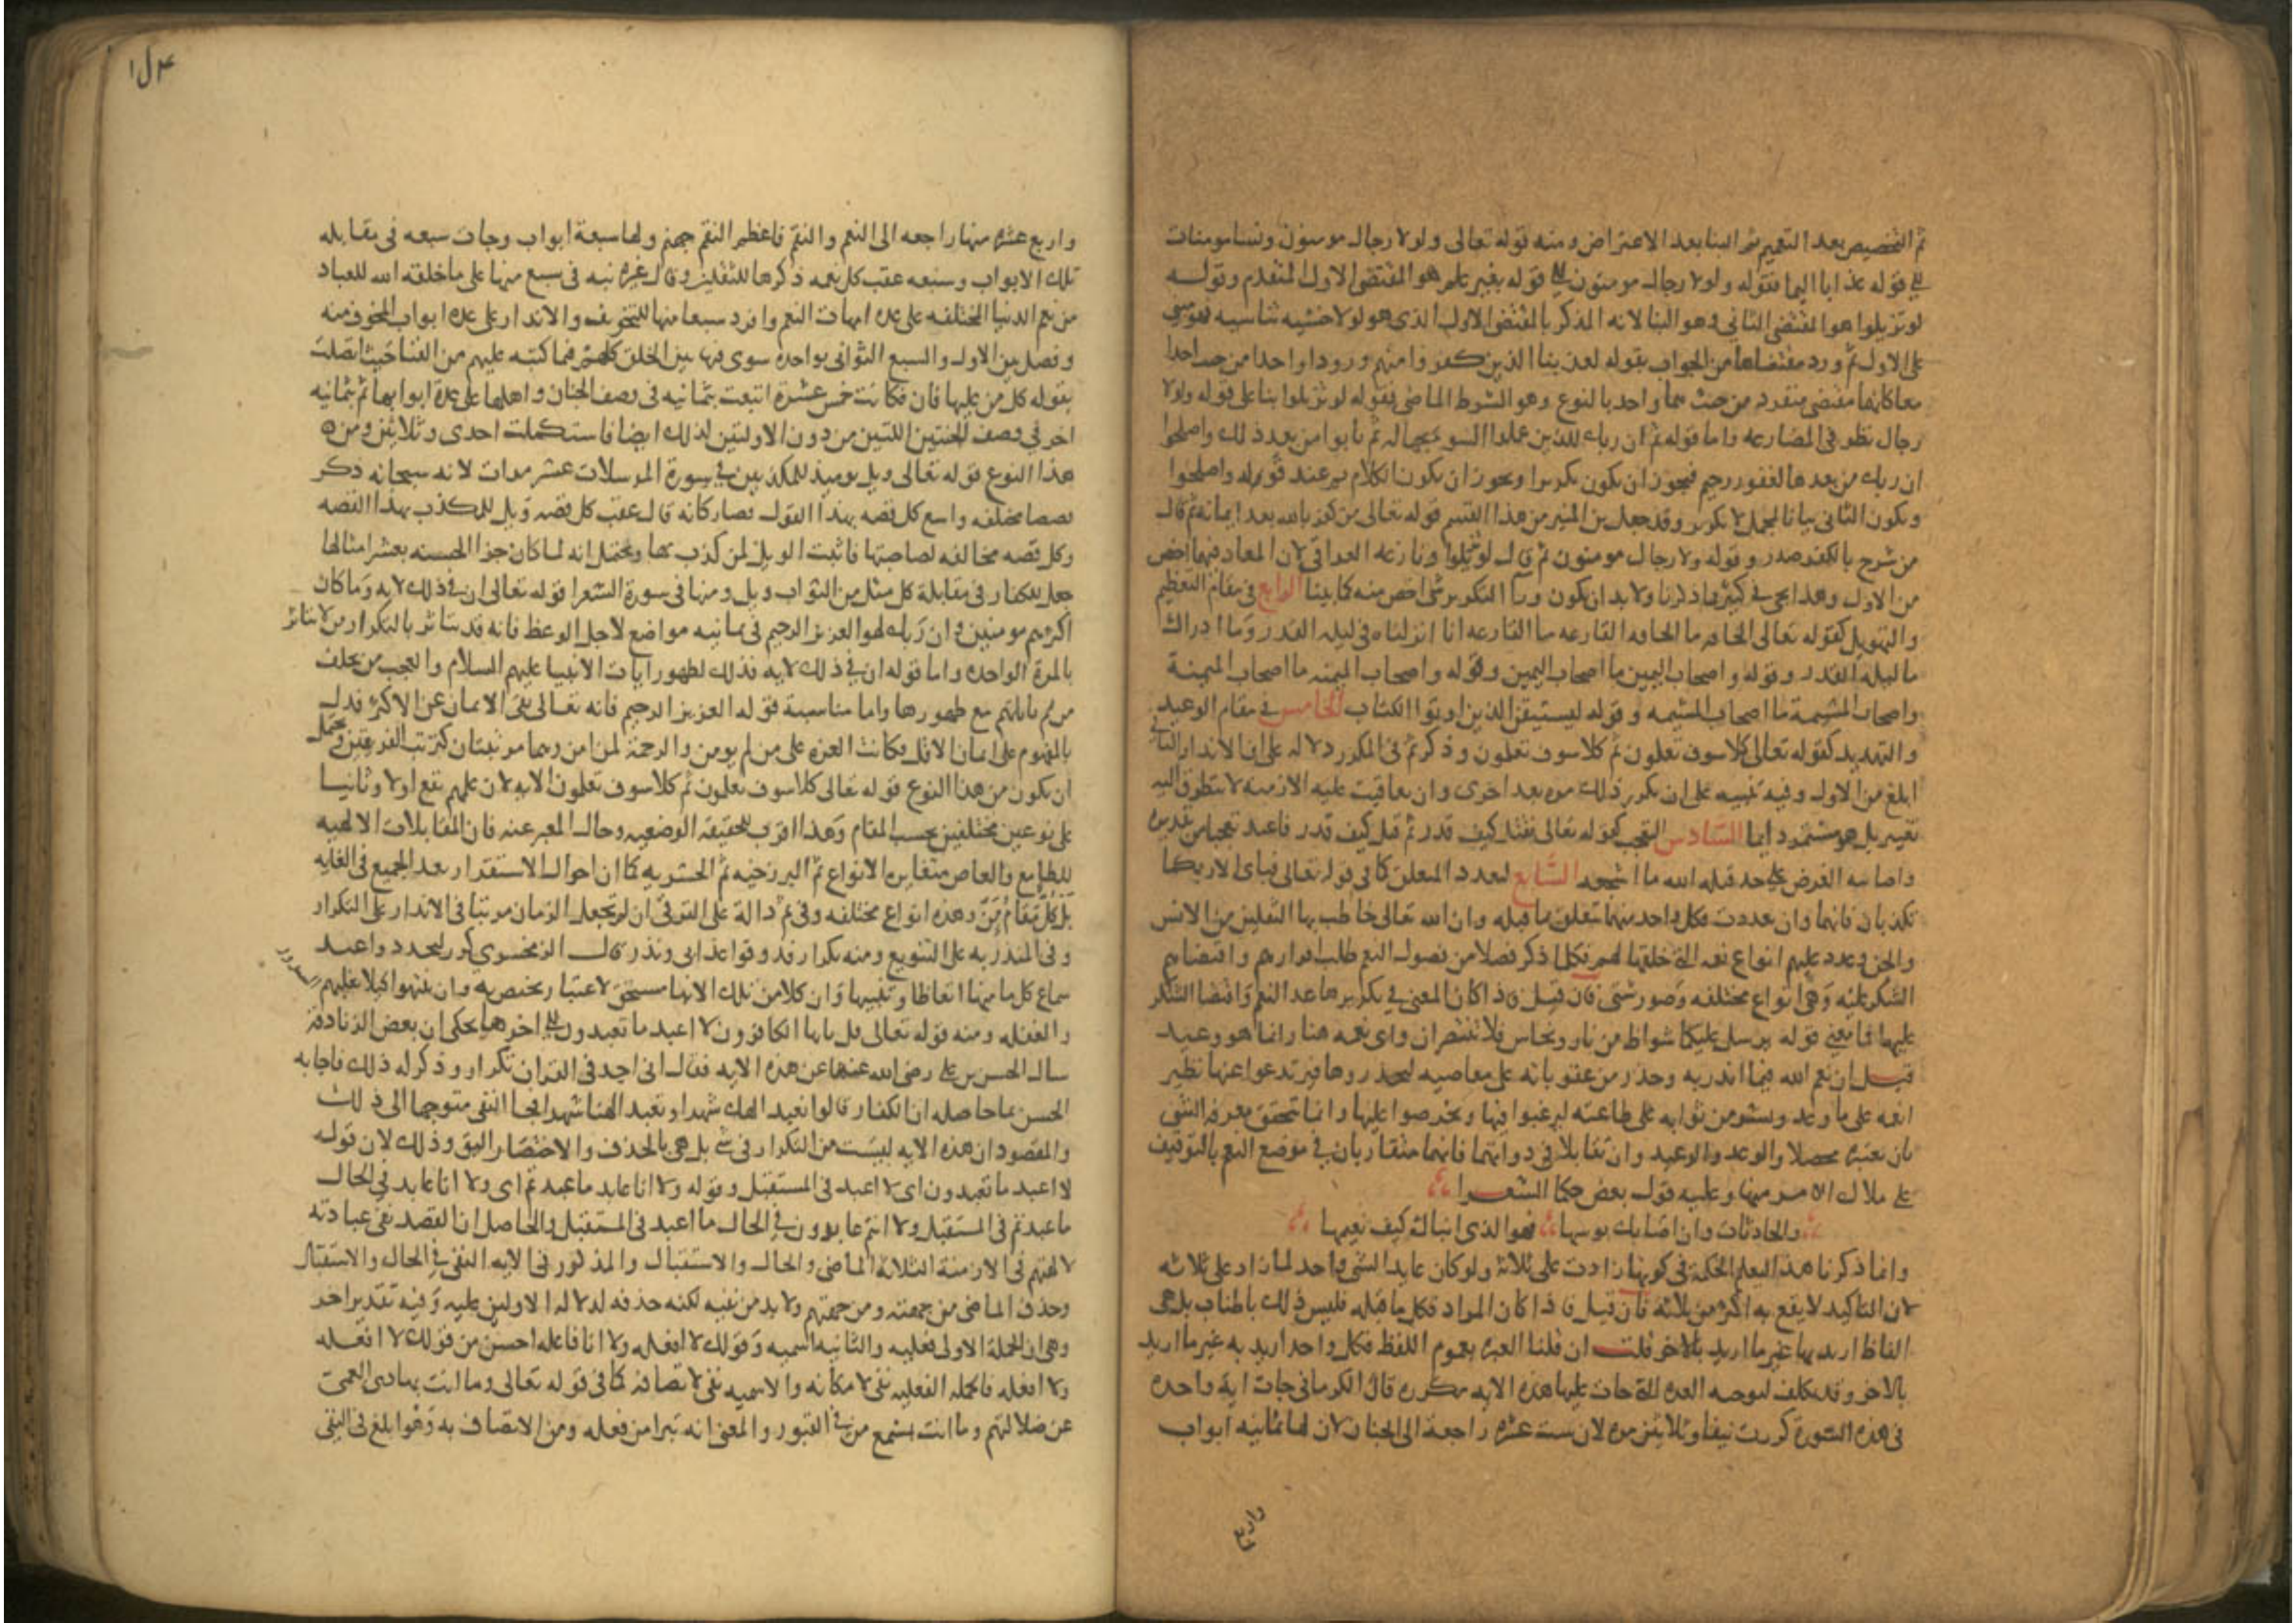 ثم التخصيص بعد التعميم ثم البنا بعد الاعتراض ومنه قوله تعالى ولولا رجال مومنون ونسا مومنات
الى قوله عذابا اليما فقوله ولولا رجال مومنون الى قوله بغير علم هو المقتضى الاول المتقدم وقوله
لو تزيلوا هو المقتضى الثاني وهو البنا لانه المذكر بالمقتضى الاول الذي هو لولا خشيه تناسيه فهو مبني
على الاول ثم ورد مقتضاها من الجواب بقوله لعذبنا الذين كفروا منهم ورودا واحدا من حيث اخذا
معا كانهما مقتضى منفرد من حيث هما واحد بالنوع وهو الشرط الماضي فقوله لو تزيلوا بنا على قوله ولولا
رجال نظر في المضارعه واما قوله ثم ان ربك للذين عملوا السو بجهاله ثم تابوا من بعد ذلك واصلحوا
ان ربك من بعدها لغفور رحيم فيجوز ان يكون تكريرا ويجوز ان يكون الكلام عند قوله واصلحوا
ويكون الثاني بيانا لمجمل لا تكرير وقد جعل ابن المنير من هذا القسم قوله تعالى من كفر بالله بعد ايمانه ثم قال
من شرح بالكفر صدرا وقوله ولولا رجال مومنون ثم قال لو تزيلوا ونازعه العراقي لان المعاد فيهما اخص
من الاول وهذا يجي في كثير مما ذكرنا ولا بد ان يكون ورا التكرير شي اخص منه كما بينا الرابع في مقام التعظيم
والتهويل كقوله تعالى الحاقه ما الحاقه القارعه ما القارعه انا انزلناه في ليله القدر وما ادراك
ما ليلة القدر وقوله واصحاب اليمين ما اصحاب اليمين وقوله واصحاب الميمنه ما اصحاب الميمنة
واصحاب المشيمة ما اصحاب المشيمه وقوله ليستيقن الذين اوتوا الكتاب الخامس في مقام الوعيد
والتهديد كقوله تعالى كلا سوف تعلمون ثم كلا سوف تعلمون وذكر ثم في المكرر دلاله على ان الانذار الثاني
ابلغ من الاول وفيه تنبيه على ان تكرر ذلك مره بعد اخرى وان تعاقبت عليه الازمنه لا يتطرق اليه
تغيير بل هو مستمر دايما السادس التعجب كقوله تعالى فقتل كيف قدر ثم قتل كيف قدر فاعيد تعجبا من تقديره
واصابته الغرض على حد قتله الله ما اشجعه السابع لتعدد المتعلق كما في قوله تعالى فباي الا ربكما
تكذبان فانها وان تعددت فكل واحد منها متعلق بما قبله وان الله تعالى خاطب بها الثقلين من الانس
والجن وعدد عليهم انواع نعمه التي خلقها لهم فكلما ذكر فصلا من فصول النعم طلب اقرارهم واقتضاهم
الشكر عليه وهي انواع مختلفه وصور شتى فان قيل فاذا كان المعنى في تكريرها عد النعم واقتضا الشكر
عليها فما معنى قوله يرسل عليكما شواظ من نار ونحاس فلا تنتصران واي نعمه هنا وانما هو وعيد
قيل ان نعم الله فيما انذر به وحذر من عقوباته على معاصيه ليحذروها فيرتدعوا عنها نظير
انعمه على ما وعد وبشر من ثوابه على طاعته ليرغبوا فيها ويحرصوا عليها وانما تتحقق معرفة الشي
بان تعتبره بضده والوعد والوعيد وان تقابلا في ذواتهما فانهما متقاربان في موضع النعم بالتوقيف
على ملاك الامر منها وعليه قول بعض حكما الشعرا
والحادثات وان اصابك بوسها فهو الذي انباك كيف نعيمها
وانما ذكرنا هذا لتعلم الحكمة في كونها زادت على ثلاثة ولو كان عايدا لشي واحد لما زاد على ثلاثه
لان التاكيد لا يقع به اكثر من ثلاثه فان قيل فاذا كان المراد بكل ما قبله فليس ذلك باطناب بل هي
الفاظ اريد بها غير ما اريد بالاخر قلت ان قلنا العبره بعموم اللفظ فكل واحد اريد به غير ما اريد
بالاخر وقد تكلف لتوجيه العده التي جات عليها هذه الايه مكرره قال الكرماني جات اية واحده
في هذه السورة كررت نيفا وثلاثين مره لان ست عشره راجعة الى الجنان لان لها ثمانيه ابواب
واربع
١ل٤
واربع عشره منها راجعه الى النعم والنقم فاعظم النقم جهنم ولها سبعة ابواب وجات سبعه في مقابله
تلك الابواب وسبعه عقب كل نعمه ذكرها للثقلين وقال غيره نبه في سبع منها على ما خلقه الله للعباد
من نعم الدنيا المختلفه على عده امهات النعم وافرد سبعا منها للتخويف والانذار على عده ابواب المخوف منه
وفصل بين الاول والسبع الثواني بواحده سوى فيها بين الخلق كلهم فيما كتبه عليهم من الفنا حيث اتصلت
بقوله كل من عليها فان فكانت خمس عشرة اتبعت بثمانيه في وصف الجنان واهلها على عدة ابوابها ثم بثمانيه
اخر في وصف الجنتين اللتين من دون الاوليين لذلك ايضا فاستكملت احدى وثلاثين ومن
هذا النوع قوله تعالى ويل يوميذ للمكذبين في سورة المرسلات عشر مرات لانه سبحانه ذكر
قصصا مختلفه واتبع كل قصه بهذا القول فصار كانه قال عقب كل قصه ويل للمكذب بهذا القصه
وكل قصه مخالفه لصاحبتها فاثبت الويل لمن كذب بها ويحتمل انه لما كان جزا الحسنه بعشر امثالها
جعل للكفار في مقابلة كل مثل من الثواب ويل ومنها في سورة الشعرا قوله تعالى ان في ذلك لايه وما كان
اكثرهم مومنين وان ربك لهو العزيز الرحيم في ثمانيه مواضع لاجل الوعظ فانه قد يتاثر بالتكرار من لا يتاثر
بالمرة الواحده واما قوله ان في ذلك لايه فذلك لظهور ايات الانبيا عليهم السلام والعجب من تخلف
من لم يتاملها مع ظهورها واما مناسبة قوله العزيز الرحيم فانه تعالى نفى الايمان عن الاكثر فدل
بالمفهوم على ايمان الاقل فكانت العزه على من لم يومن والرحمة لمن امن وهما مرتبتان كترتب الفريقين ويحتمل
ان يكون من هذا النوع قوله تعالى كلا سوف تعلمون ثم كلا سوف تعلمون الايه لان علمهم يقع اولا وثانيا
على نوعين مختلفين بحسب المقام وهذا اقرب للحقيقه الوضعيه وحال المعبر عنه فان المقابلات الالهيه
للطايع والعاصي متغايره الانواع ثم البرزخيه ثم الحشريه كما ان احوال الاستقرار بعد الجميع في الغايه
بل كل مقام وهذه انواع مختلفه وفي ثم دالة على الترقي ان لم تجعل الزمان مرتبا في الانذار على التكرار
وفي المنذر به على التنويع ومنه تكرار فذوقوا عذابي ونذر قال الزمخشري كرر ليجددوا عند
سماع كل ما منها اتعاظا وتنبيها وان كلا من تلك الانبا مستحق لاعتبار يختص به وان يتنبهوا كيلا يغلبهم السرور
والغفله ومنه قوله تعالى قل يا ايها الكافرون لا اعبد ما تعبدون الى اخرها يحكى ان بعض الزنادقة
سال الحسن بن علي رضي الله عنهما عن هذه الايه فقال اني اجد في القران تكرارا وذكر له ذلك فاجابه
الحسن بما حاصله ان الكفار قالوا نعبد الهك شهرا وتعبد الهنا شهرا فجا النفي متوجها الى ذلك
والمقصود ان هذه الايه ليست من التكرار في شي بل هي بالحذف والاختصار اليق وذلك لان قوله
لا اعبد ما تعبدون اي لا اعبد في المستقبل وقوله ولا انا عابد ما عبدتم اي ولا انا عابد في الحال
ما عبدتم في المستقبل ولا انتم عابدون في الحال ما اعبد في المستقبل والحاصل ان القصد نفي عبادته
لالهتهم في الازمنة الثلاثة الماضي والحال والاستقبال والمذكور في الايه النفي في الحال والاستقبال
وحذف الماضي من جهته ومن جهتهم ولا بد من نفيه لكنه حذفه لدلاله الاولين عليه وفيه تقدير اخر
وهي ان الجملة الاولى فعليه والثانيه اسميه وقولك لا افعله ولا انا فاعله احسن من قولك لا افعله
ولا افعله فالجمله الفعليه نفي لامكانه والاسميه نفي لاتصافه كما في قوله تعالى وما انت بهادي العمي
عن ضلالتهم وما انت بمسمع من في القبور والمعنى انه تبرا من فعله ومن الاتصاف به وهو ابلغ في النفي